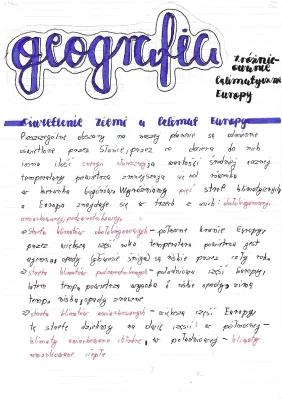 geografia
Zróżnic-
owanie
klimatyczne
Europy
Oświetlenie Ziemi a klimat Europy
Poszczególne obszary na naszej planecie są odmiennie
oświetlone przez Słońce, przez co dociera do nich
inna ilość energii słonecznej, wartości średniej rocznej
temperatury powietrza zmniejszają się od równika
w kierunku biegunów. Wyróżniamy pięć stref klimatycznych
a Europa znajduje się w trzech z nich: okołobiegunowej,
umiarkowanej, podzwrotnikowej.
⇒ strefa klimatów okołobiegunowych - północne krańce Europy,
przez większą część roku temperatura powietrza jest
ujemna, opady (głównie śniegu) są niskie przez cały rok.
⇒ strefa klimatów podzwrotnikowych - południowa część Europy,
latem temp. powietrza wysoka i niskie opady, zimą
temp. niska, opady znaczne
⇒ strefa klimatów umiarkowanych - większa część Europy
tę strefę dzielimy na dwie części: w północnej -
klimaty umiarkowane chłodne, w południowej - klimaty
umiarkowane ciepłe